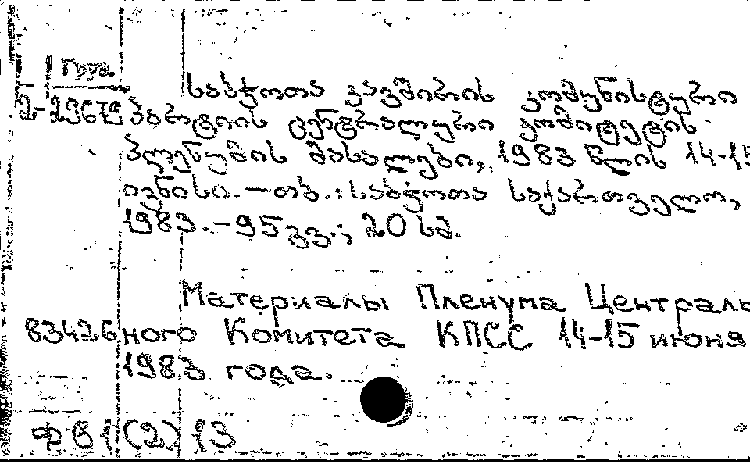 Груз.
საბჭოთა კავშირის კომუნისტური
2-29678 პარტიის ცენტრალური კომიტეტის
პლენუმის მასალები, 1983 წლის 14-15
ივნისი. — თბ.: საბჭოთა საქართველო,
1983. — 95 გვ.; 20 სმ.
Материалы Пленума Централь
83426 ного Комитета КПСС 14-15 июня
1983 года.